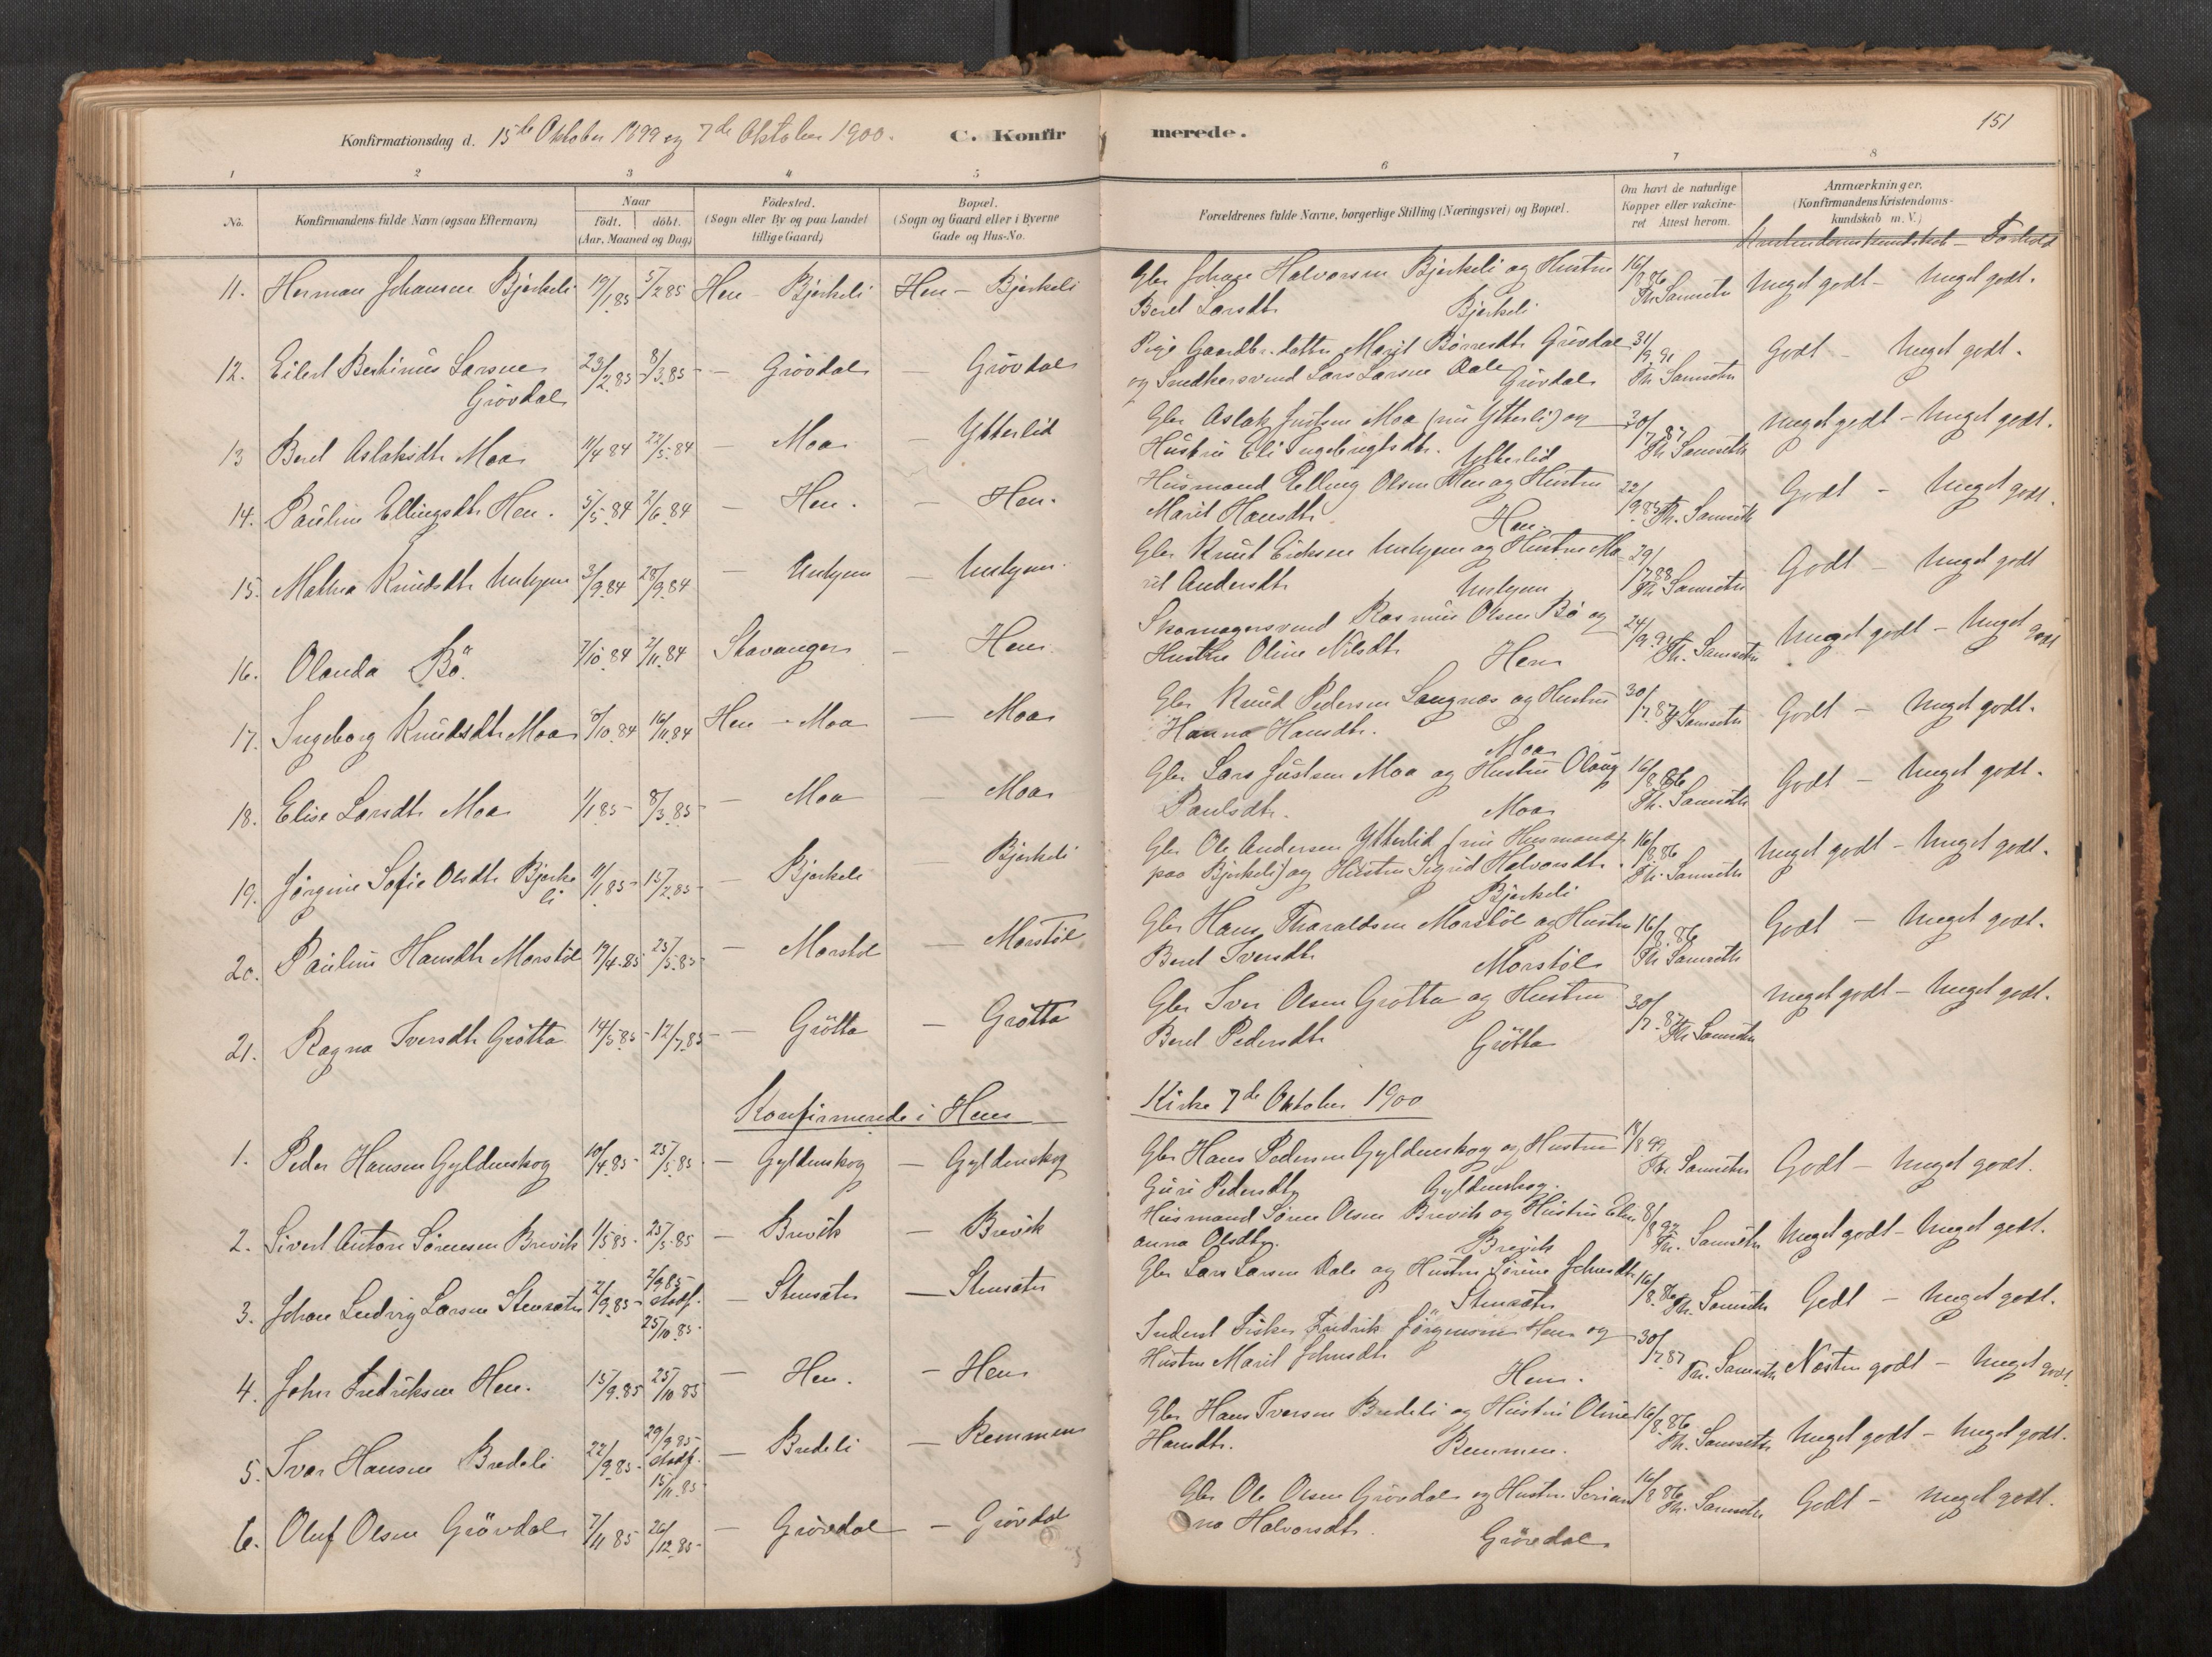 Konfirmationsdag d. 15de Oktober 1899 og 7de Oktober 1900. C. Konfirmerede. 151
1 2 3 4 5 6 7 8
No.
Konfirmandens fulde Navn (ogsaa Efternavn)
Naar
födt. döbt.
(Aar, Maaned og Dag)
Födested.
(Sogn eller By og paa Landet
tillige Gaard)
Bopæl.
(Sogn og Gaard eller i Byerne
Gade og Hus-No.
Forældrenes fulde Navne, borgerlige Stilling (Næringsvei) og Bopæl.
Om havt de naturlige
Kopper eller vakcine-
ret Attest herom.
Anmærkninger.
(Konfirmandens Kristendoms-
kundskab m. V.)
Kristendomskundskab - Forhold
11. Herman Johansen Bjerkeli 19/1 85 5/2 85 Hen - Bjerkeli Hen - Bjerkeli Gbr Johan Halvorsen Bjerkeli og Hustru 16/8 86 Meget godt - Meget godt.
Beret Larsdtr Bjerkeli Th. Samseth
12. Eilert Bertinus Larsen 23/2 85 8/3 85 - Grövdal - Grövdal Pige Gaardbr.datter Marit Grövdal 31/9 91 Godt - Meget godt.
Grövdal og Snedkersvend Lars Larsen Dale Grövdal Th Samseth
13 Beret Aslaksdtr Moa 11/4 84 22/5 84 - Moa - Ytterlid Gbr Aslak Justsen Moa (nu Ytterli) og 30/7 87 Meget godt - Meget godt.
Hustru Eli Ingebrigtsdtr. Ytterlid Th Samseth
14. Pauline Ellingsdtr Hen. 5/5 84 2/6 84 - Hen. - Hen. Husmand Elling Olsen Hen og Hustru 22/9 85 Godt - Meget godt.
Marit Hansdtr Hen. Th. Samseth
15. Mathea Knudsdtr 3/9 84 28/9 84 Gbr Knut Eriksen og Hustru Ma- 29/7 88 Godt - Meget godt
rit Andersdtr Th Samseth
16. Olanda Bö. 7/10 84 2/11 84 Stavanger - Hen Skomagersvend Rasmus Olsen Bö og 24/9 91 Meget godt - Meget godt
Hustru Oline Nilsdtr Hen Th. Samseth
17. Ingeborg Knudsdtr Moa 8/10 84 16/11 84 Hen - Moa - Moa Gbr Knud Pedersen Sangnæs og Hustru 30/7 87 Godt - Meget godt.
Hanna Hansdtr. Moa Samseth
18. Elise Larsdtr Moa 1/1 85 - 8/3 85 - Moa - Moa Gbr Lars Justsen Moa og Hustru Olaug 16/8 86 Godt - Meget godt.
Paulsdtr. Moa Th. Samseth
19. Jörgine Sofie Olsdtr Bjerke 11/1 85 - 15/2 85 - Bjerkeli - Bjerkeli Gbr Ole Andersen Ytterlid (nu Husmand 16/8 86 Meget godt - Meget godt.
li paa Bjerkeli) og Hustru Sigrid Halvorsdtr. Th. Samseth
Bjerkeli
20. Pauline Hansdtr Morstöl 19/4 85 25/5 85 - Morstöl - Morstöl Gbr Hans Tharaldsen Morstöl og Hustru 16/8 86 Godt - Meget godt.
Beret Iversdtr Morstöl Th Samseth
21. Ragna Iversdtr Grötta 14/5 85 - 12/7 85 - Grötta - Grötta Gbr Iver Olsen Grötta og Hustru 30/7 87 Meget godt - Meget godt.
Beret Pedersdtr Grötta Th Samseth
Konfirmerede i Hens Kirke 7de Oktober 1900
1. Peder Hansen Gyldenskog 10/4 85 - 25/5 85 - Gyldenskog - Gyldenskog Gbr Hans Pedersen Gyldenskog og Hustru Godt - Meget godt.
Guri Pedersdtr Gyldenskog. Th. Samseth
2. Sivert Anton Sörensen Brevik 1/5 85 - 25/5 85 - Brevik - Brevik Husmand Sören Olsen Brevik og Hustru Elen 8/8 92 Meget godt - Meget godt.
anna Olsdtr. Brevik Th. Samseth
3. Johan Ludvig Larsen Stensæter 2/9 85 - 2/9 85 - Stensæter - Stensæter Gbr Lars Larsen Dale og Hustru Sörine Johnsdtr 16/8 86 Godt - Meget godt.
stadf. Stensæter Th. Samseth
25/10 85
4. John Fredriksen Hen. 15/9 85 25/10 85 - Hen. - Hen Inderst Fisker Fredrik Jörgensen Hen og 30/7 87 Næsten godt - Meget godt.
Hustru Marit Johnsdtr Hen. Th. Samseth
5. Ivar Hansen Bredeli 22/9 85 - 29/9 85 - Bredeli - Remmen Gbr Hans Iversen Bredeli og Hustru Oline 16/8 86 Meget godt - Meget godt.
stadf. Hansdtr. Remmen. Th. Samseth
15/11 85
6. Oluf Olsen Grövdal 7/11 85 26/12 85 - Grövdal - Grövdal Gbr Ole Olsen Grövdal og Hustru Serian 16/8 86 Godt - meget godt.
na Halvorsdtr. Grövdal Th. Samseth